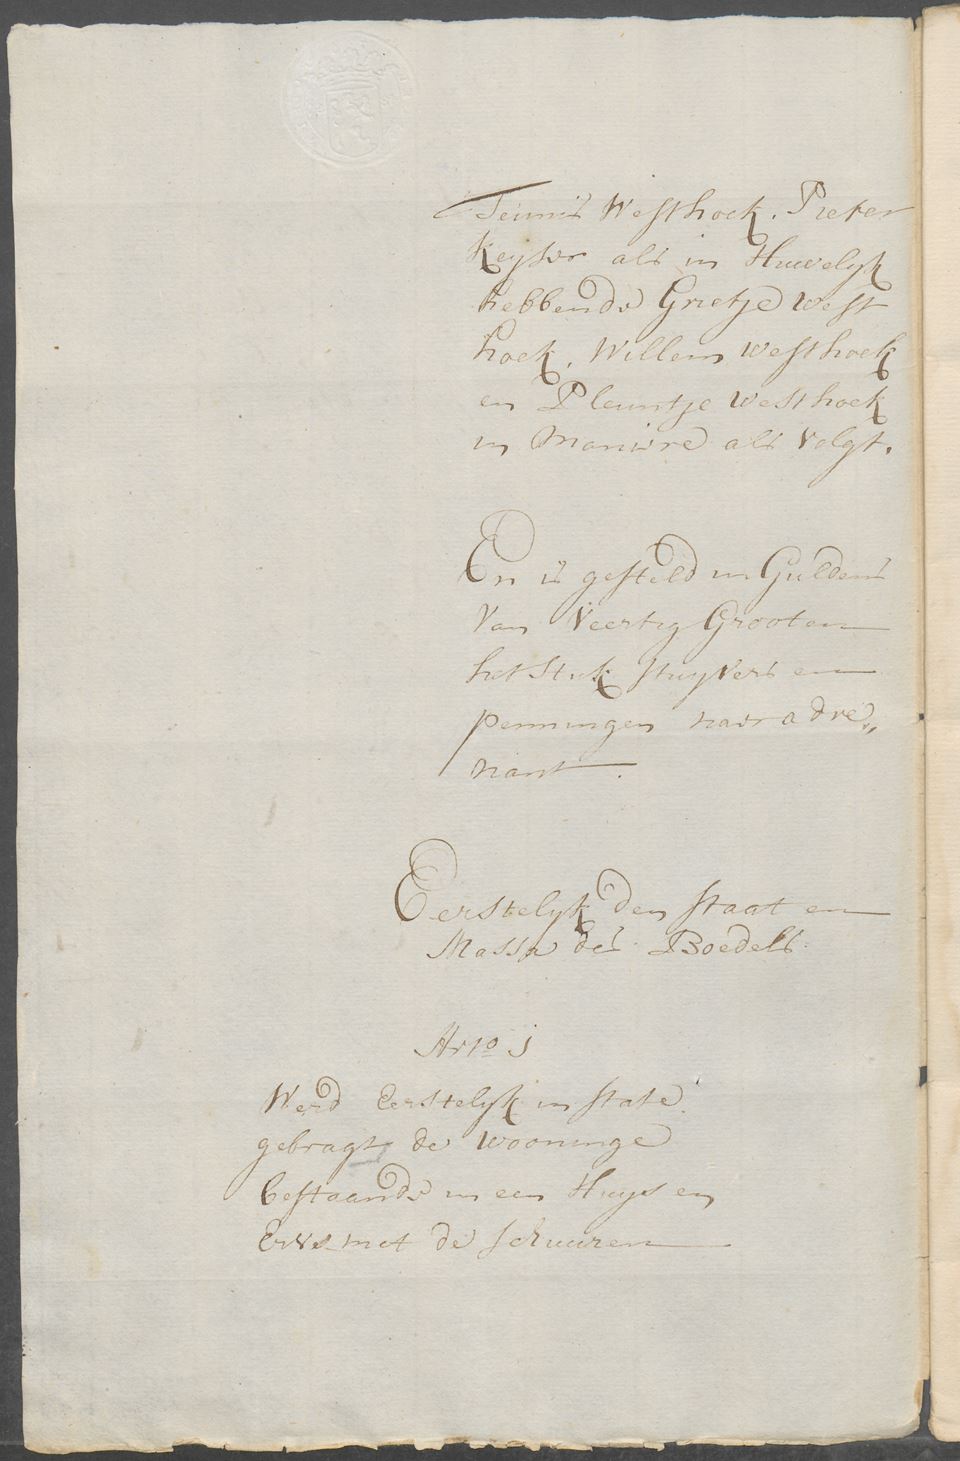 Teunis Westhoek. Pieter
Keyser als in Huwelyk
hebbende Grietje West
hoek, Willem Westhoek
en Pleuntje Westhoek
in maniere als volgt.
En is gesteld in Guldens
van veertig Grooten
het stuk stuyvers en
penningen naer advé„
nant.
Eerstelyk den staat en
Massa des Boedels.
Arto 1
Werd Eerstelyk in state
gebragt de wooninge
bestaande in een Huys en
Erve met de schuuren